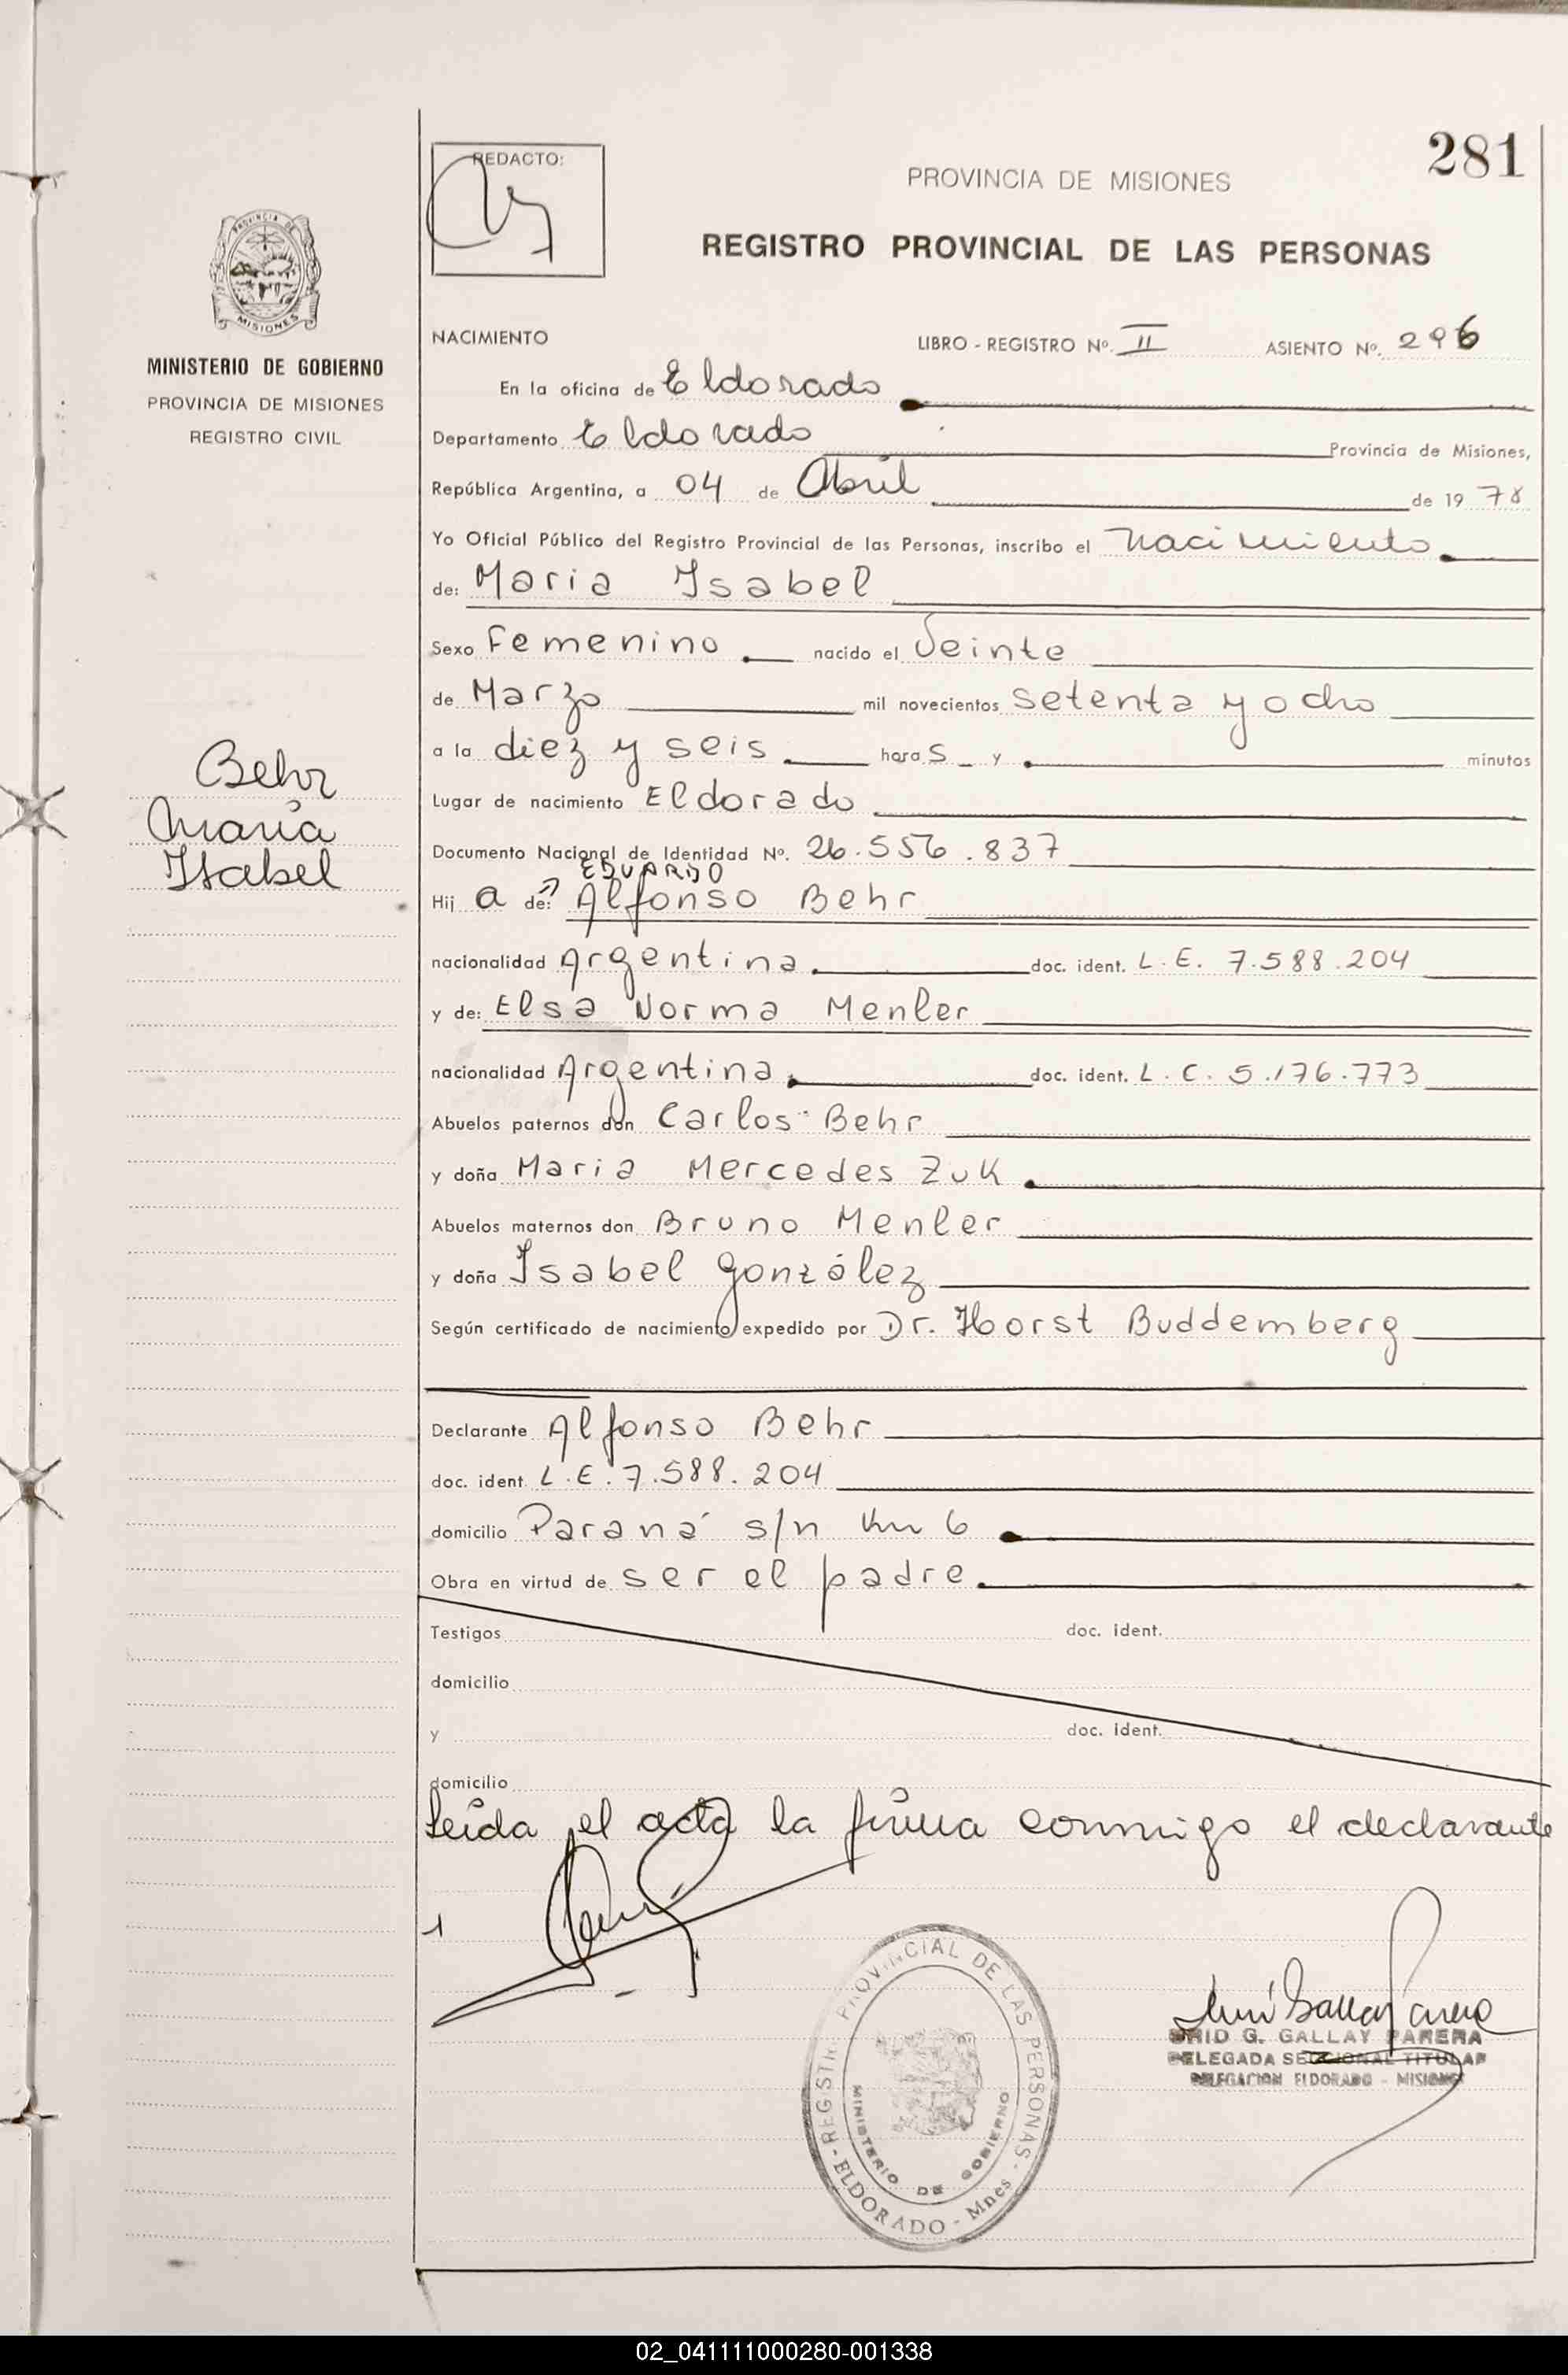 281
REDACTO:
PROVINCIA DE MISIONES
REGISTRO PROVINCIAL DE LAS PERSONAS
PROVINCIA DE
MISIONES
MINISTERIO DE GOBIERNO
PROVINCIA DE MISIONES
REGISTRO CIVIL
Behr
Maria
Isabel
NACIMIENTO LIBRO - REGISTRO Nº. II ASIENTO Nº. 296
En la oficina de Eldorado
Departamento Eldorado Provincia de Misiones,
República Argentina, a 04 de Abril de 19 78
Yo Oficial Público del Registro Provincial de las Personas, inscribo el nacimiento
de: Maria Isabel
Sexo Femenino nacido el Veinte
de Marzo mil novecientos setenta y ocho
a la diez y seis hora s y minutos
Lugar de nacimiento Eldorado
Documento Nacional de Identidad Nº. 26.556.837
EDUARDO
Hij a de: Alfonso Behr
nacionalidad Argentina doc. ident. L.E. 7.588.204
y de: Elsa Norma Menler
nacionalidad Argentina doc. ident. L.C. 5.176.773
Abuelos paternos don Carlos Behr
y doña Maria Mercedes Zuk
Abuelos maternos don Bruno Menler
y doña Isabel González
Según certificado de nacimiento expedido por Dr. Horst Buddemberg
Declarante Alfonso Behr
doc. ident. L.E. 7.588.204
domicilio Paraná s/n Km 6
Obra en virtud de ser el padre
Testigos doc. ident.
domicilio
y doc. ident.
domicilio
Leída el acta la firma conmigo el declarante
REGISTRO PROVINCIAL DE LAS PERSONAS - ELDORADO - Mnes
MINISTERIO DE GOBIERNO
G. GALLAY PARERA
DELEGADA SECCIONAL TITULAR
DELEGACION ELDORADO - MISIONES
02_041111000280-001338